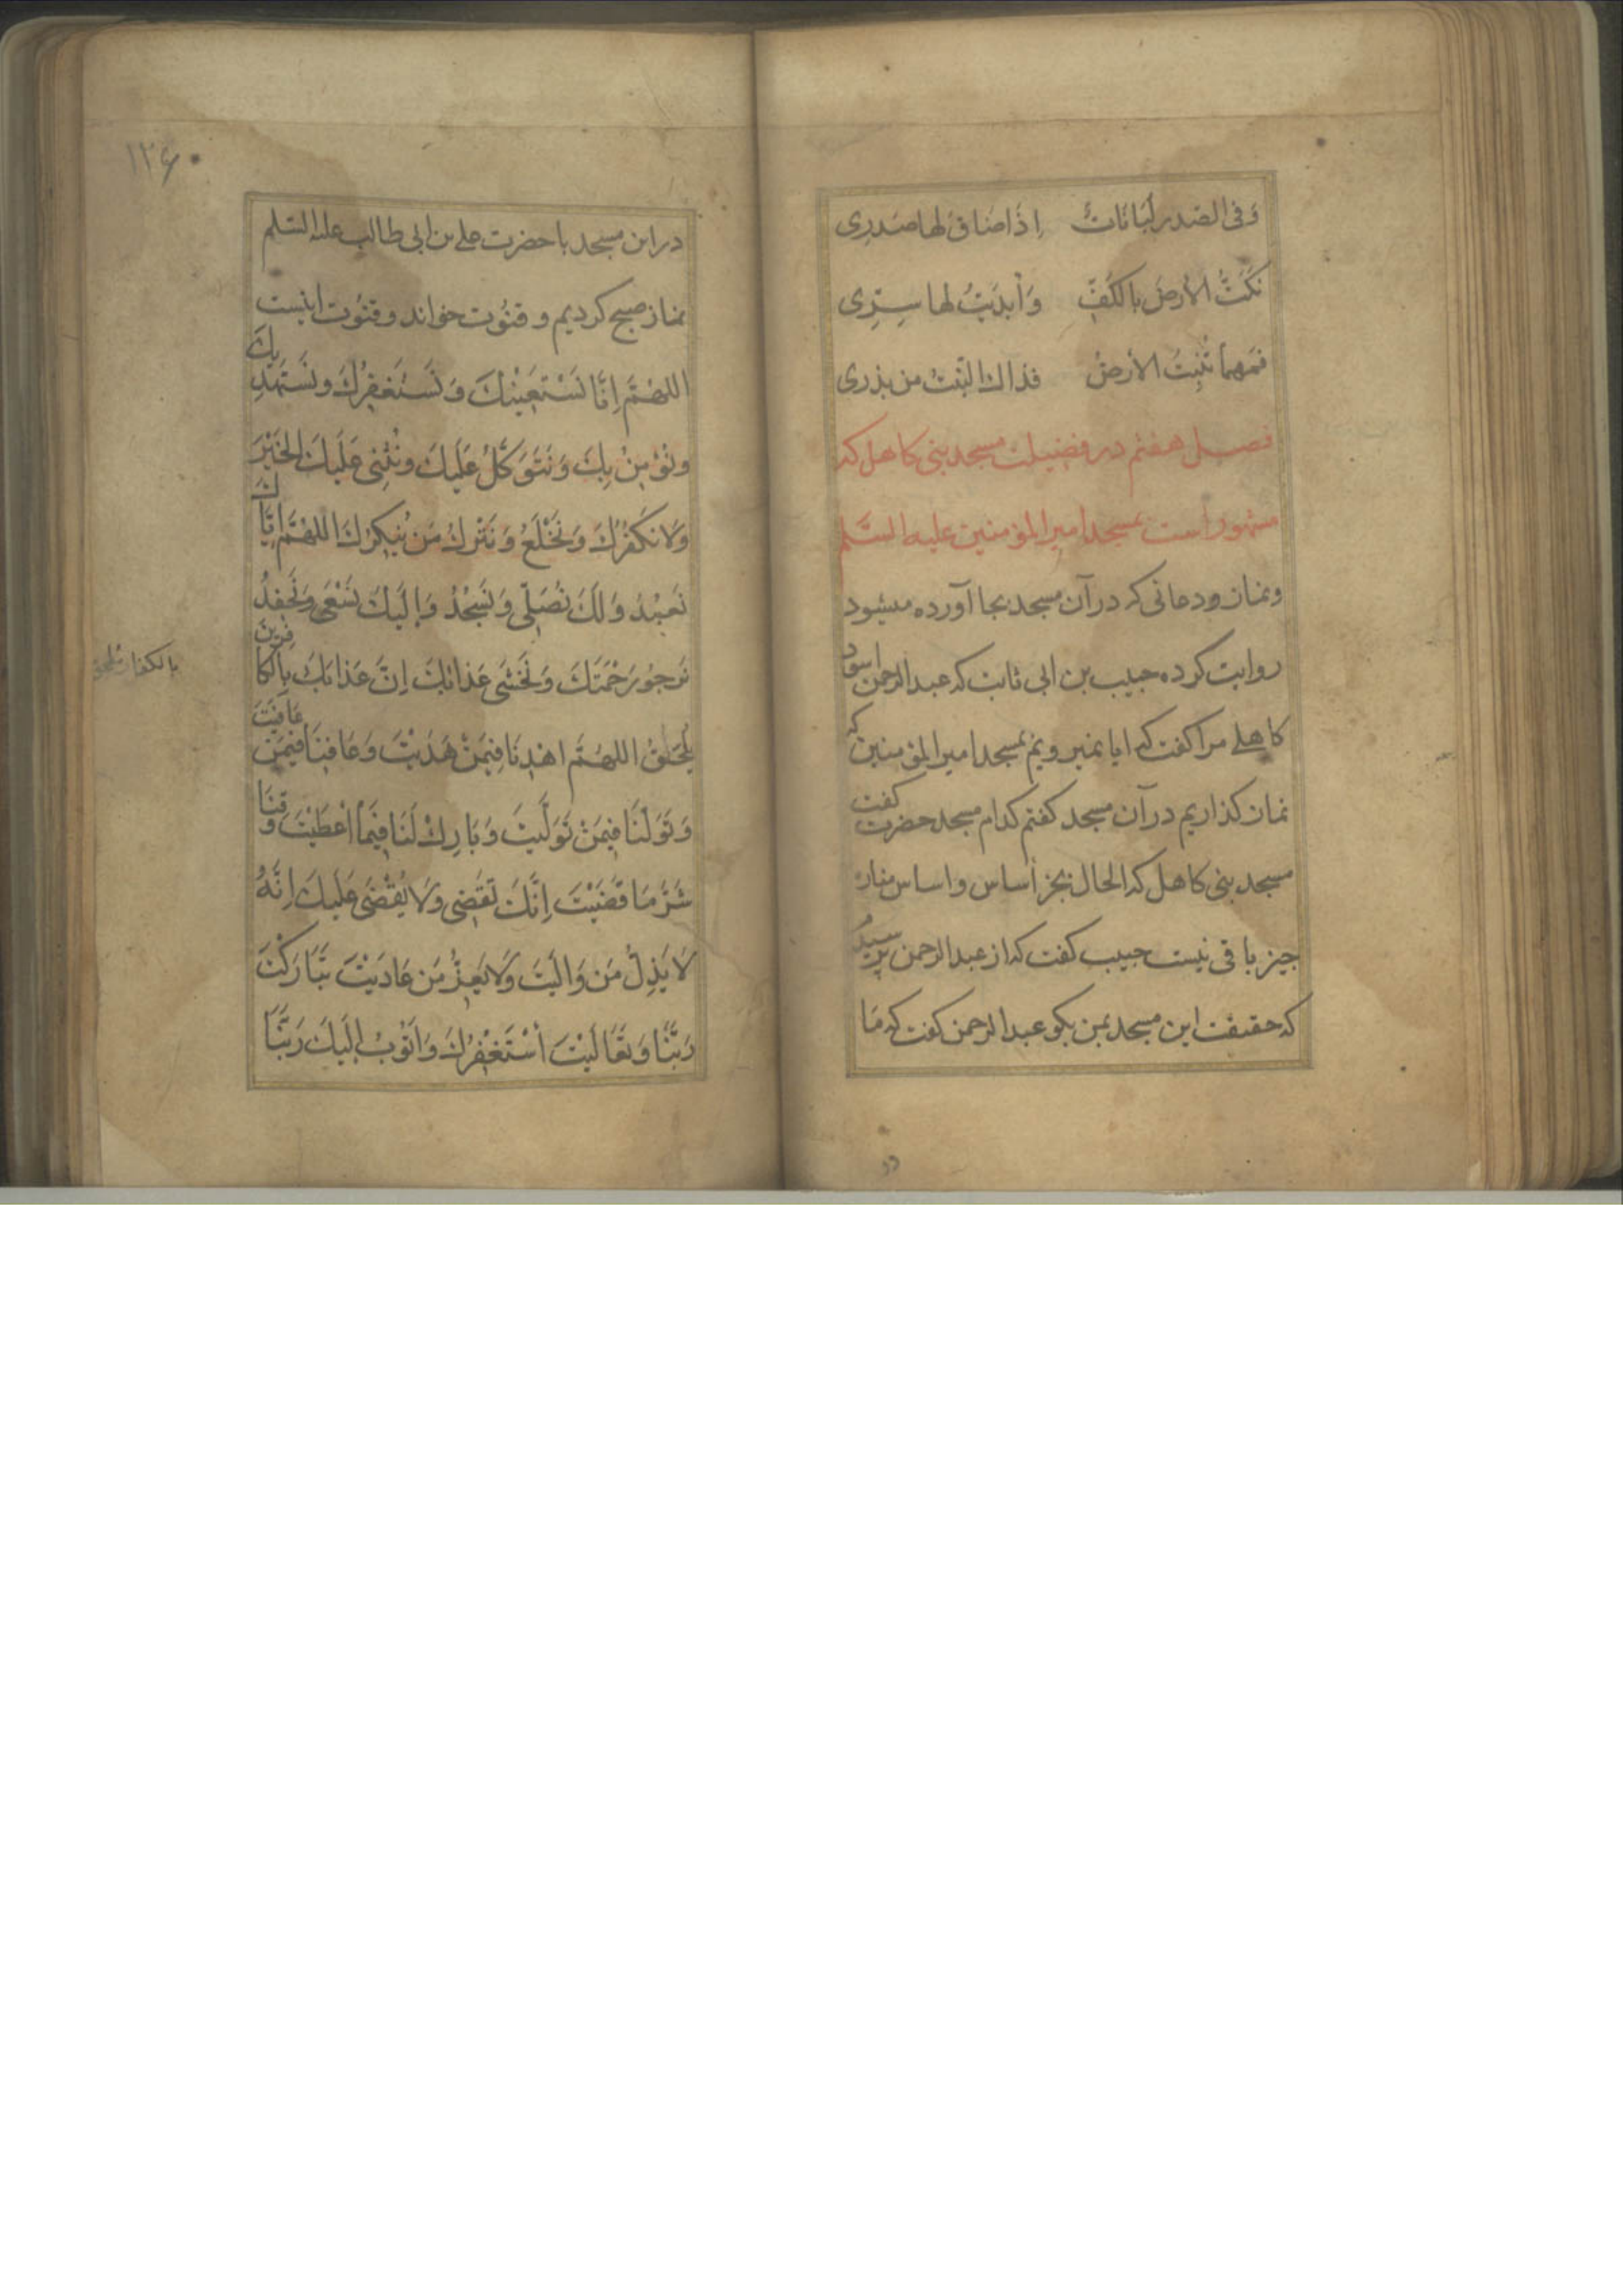 وَفِی الصَّدرِ لُبَانَاتٌ اِذَا ضَاقَ لها صَدرِی
نَکَتُّ الأرضَ بالکَفِّ وَأبدَیتُ لها سِرِّی
فمَهما تُنبِتُ الأرضُ فذاك النَّبتُ من بذری
فصل هفتم در فضیلت مسجد بنی کاهل که
مشهور است بمسجد امیرالمؤمنین علیه السَّلم
ونماز ودعائی که در آن مسجد بجا آورده میشود
روایت کرده حبیب بن ابی ثابت که عبدالرحمن اسود
کاهلے مرا کفت که ایا نمیرویم بمسجد امیرالمؤمنین که
نماز کذاریم در آن مسجد کفتم کدام مسجد حضرت کفت
مسجد بنی کاهل که الحال بجز أساس واساس مناره
چیز باقی نیست حبیب کفت که از عبدالرحمن پرسید
که حقیقت این مسجد بمن بکو عبدالرحمن کفت که مَا
۱۲۶
در این مسجد با حضرت علے بن ابی طالب علیه السّلم
نماز صبح کردیم و قنُوت خواند و قنُوت اینست
اللهُمَّ اِنَّا نَسْتَعِیْنُكَ وَنَستَغفِرُكَ ونَستَهدِیكَ
ونُؤْمِنُ بِكَ وَنَتَوَکَّلُ عَلَیكَ ونُثْنِی عَلَیكَ الخَیْرَ
وَلا نَکفُرُكَ وَنَخْلَعُ وَنَترُكُ مَن یُنکِرُكَ اللهُمَّ اِیَّاكَ
نَعبُدُ وَلَكَ نُصَلِّی وَنَسجُدُ وَاِلَیكَ نَسْعَی وَنَحفِدُ
نَرجُو رَحْمَتَكَ وَنَخشَی عَذابَكَ اِنَّ عَذابَكَ بِالکافِرِینَ
بالکفار ملحق
یُلحَقُ اللهُمَّ اهْدِنَا فِیمَنْ هَدَیْتَ وَعَافِنَا فِیمَن عَافَیتَ
وَتَوَلَّنَا فِیمَنْ تَوَلَّیتَ وَبَارِكْ لَنَا فِیمَا أعْطَیْتَ وَقِنَا
شَرَّ مَا قَضَیْتَ اِنَّكَ تَقضِی وَلا یُقْضَی عَلَیكَ اِنَّهُ
لا یَذِلُّ مَن وَالَیتَ وَلا یَعِزُّ مَن عَادَیْتَ تَبَارَکْتَ
رَبَّنَا وَتَعَالَیْتَ أسْتَغْفِرُكَ وَاَتُوبُ اِلَیكَ رَبَّنَا